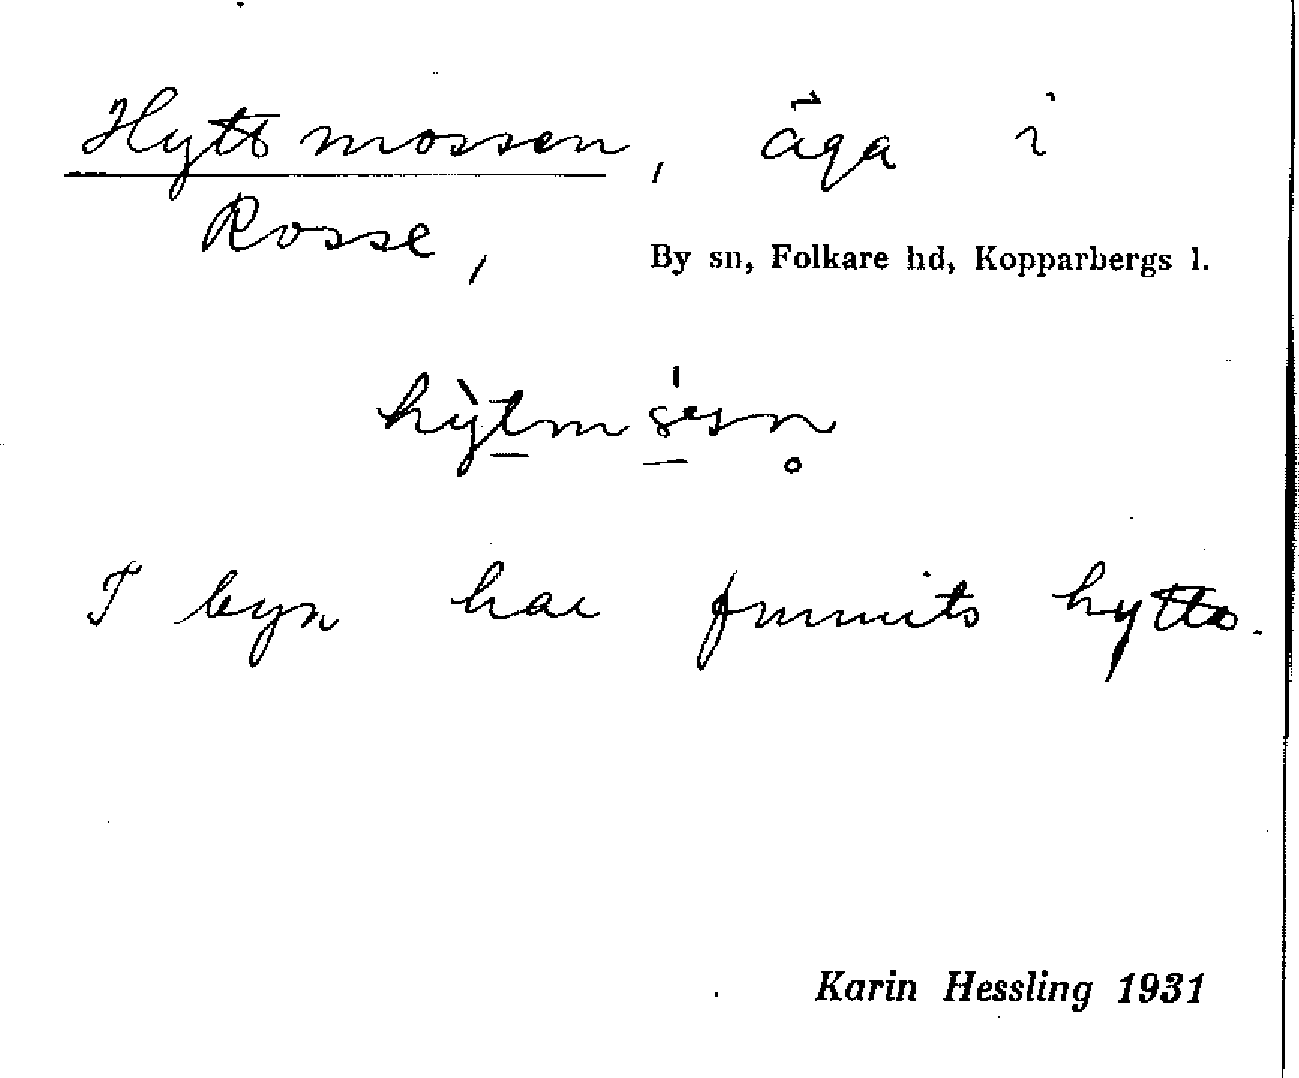 Hyttmossen, äga i
Rosse,
By sn, Folkare hd, Kopparbergs l.
I byn har funnits hytta.
Karin Hessling 1931